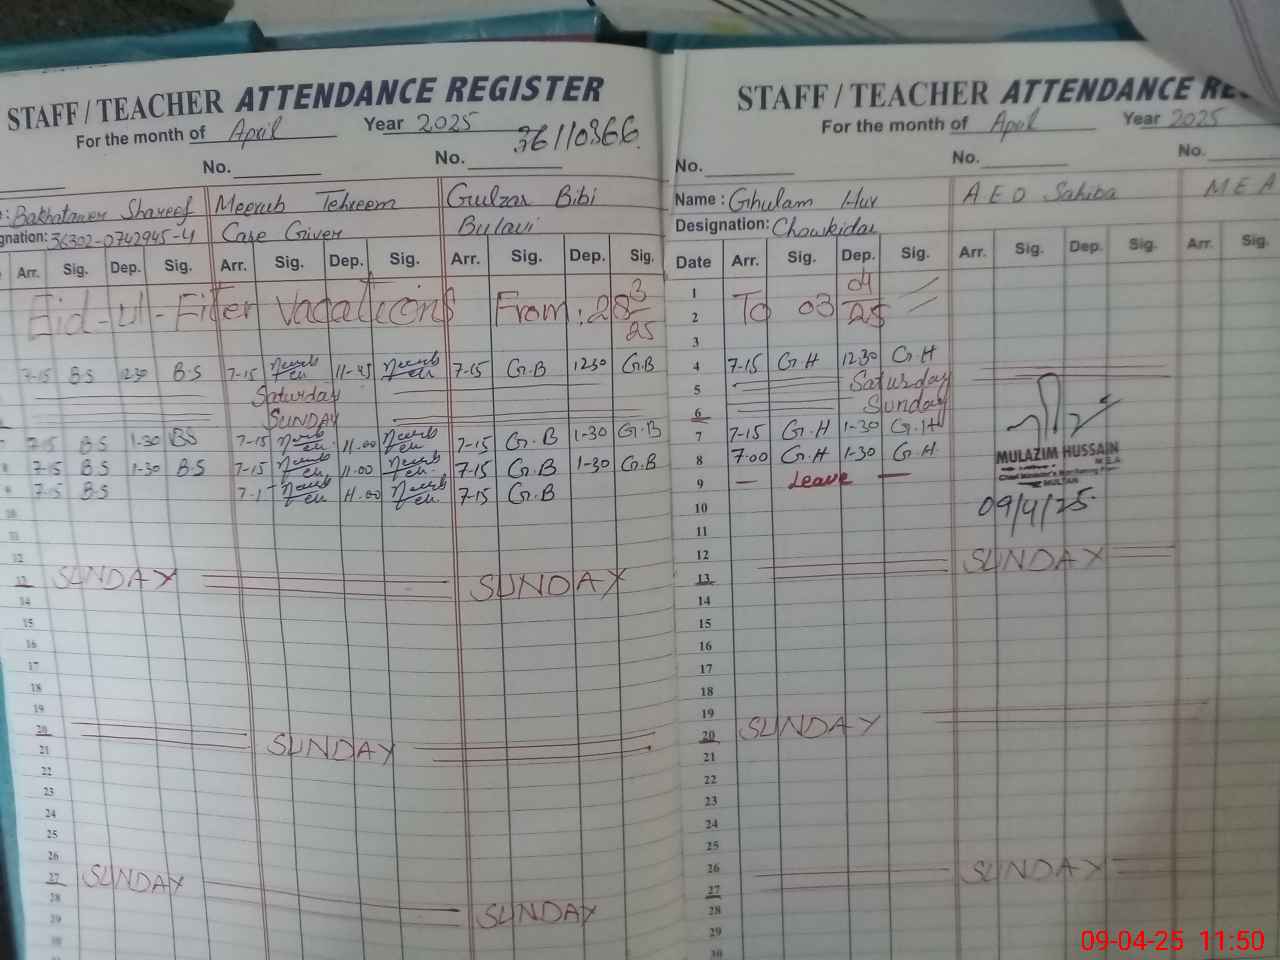 STAFF / TEACHER ATTENDANCE REGISTER
For the month of April Year 2025
36110366
No. No.
Bakhatawer Shareef Meerub Tehreem Gulzar Bibi
gnation: 36302-0742945-4 Care Giver Bulavi
Arr. Sig. Dep. Sig. Arr. Sig. Dep. Sig. Arr. Sig. Dep. Sig.
Eid-ul-Fiter vacations From: 28 3/25
7-15 B.S 1230 B.S 7-15 11-45 7-15 G.B 1230 G.B
Saturday
SUNDAY
7-15 B.S 1-30 BS 7-15 11.00 7-15 G.B 1-30 G.B
8 7-15 B.S 1-30 B.S 7-15 11.00 7-15 G.B 1-30 G.B
7-15 B.S 11.00 7-15 G.B
10
11
12
13 SUNDAY SUNDAY
14
15
16
17
18
19
20 SUNDAY
21
22
23
24
25
26
27 SUNDAY
28 SUNDAY
29
30
STAFF / TEACHER ATTENDANCE RE
For the month of April Year 2025
No. No. No.
Name: Ghulam Hur A E O Sahiba M E A
Designation: Chowkidar
Date Arr. Sig. Dep. Sig. Arr. Sig. Dep. Sig. Arr. Sig.
1
2 To 03 04/25
3
4 7-15 G.H 1230 G.H
5 Saturday
6 Sunday
7 7-15 G.H 1-30 G.H
8 7.00 G.H 1-30 G.H.
9 — Leave —
MULAZIM HUSSAIN
MULTAN
09/4/25
10
11
12 SUNDAY
13
14
15
16
17
18
19
20 SUNDAY
21
22
23
24
25
26 SUNDAY
27
28
29
30
09-04-25 11:50